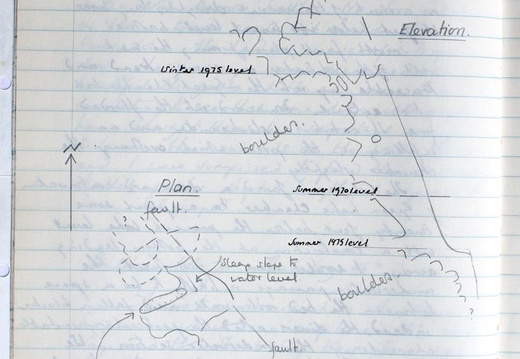 Elevation.
Winter 1975 level
boulder.
N
Plan.
Summer 1970 level
fault.
?
Summer 1975 level
steep slope to
water level
boulder.
?
fault.